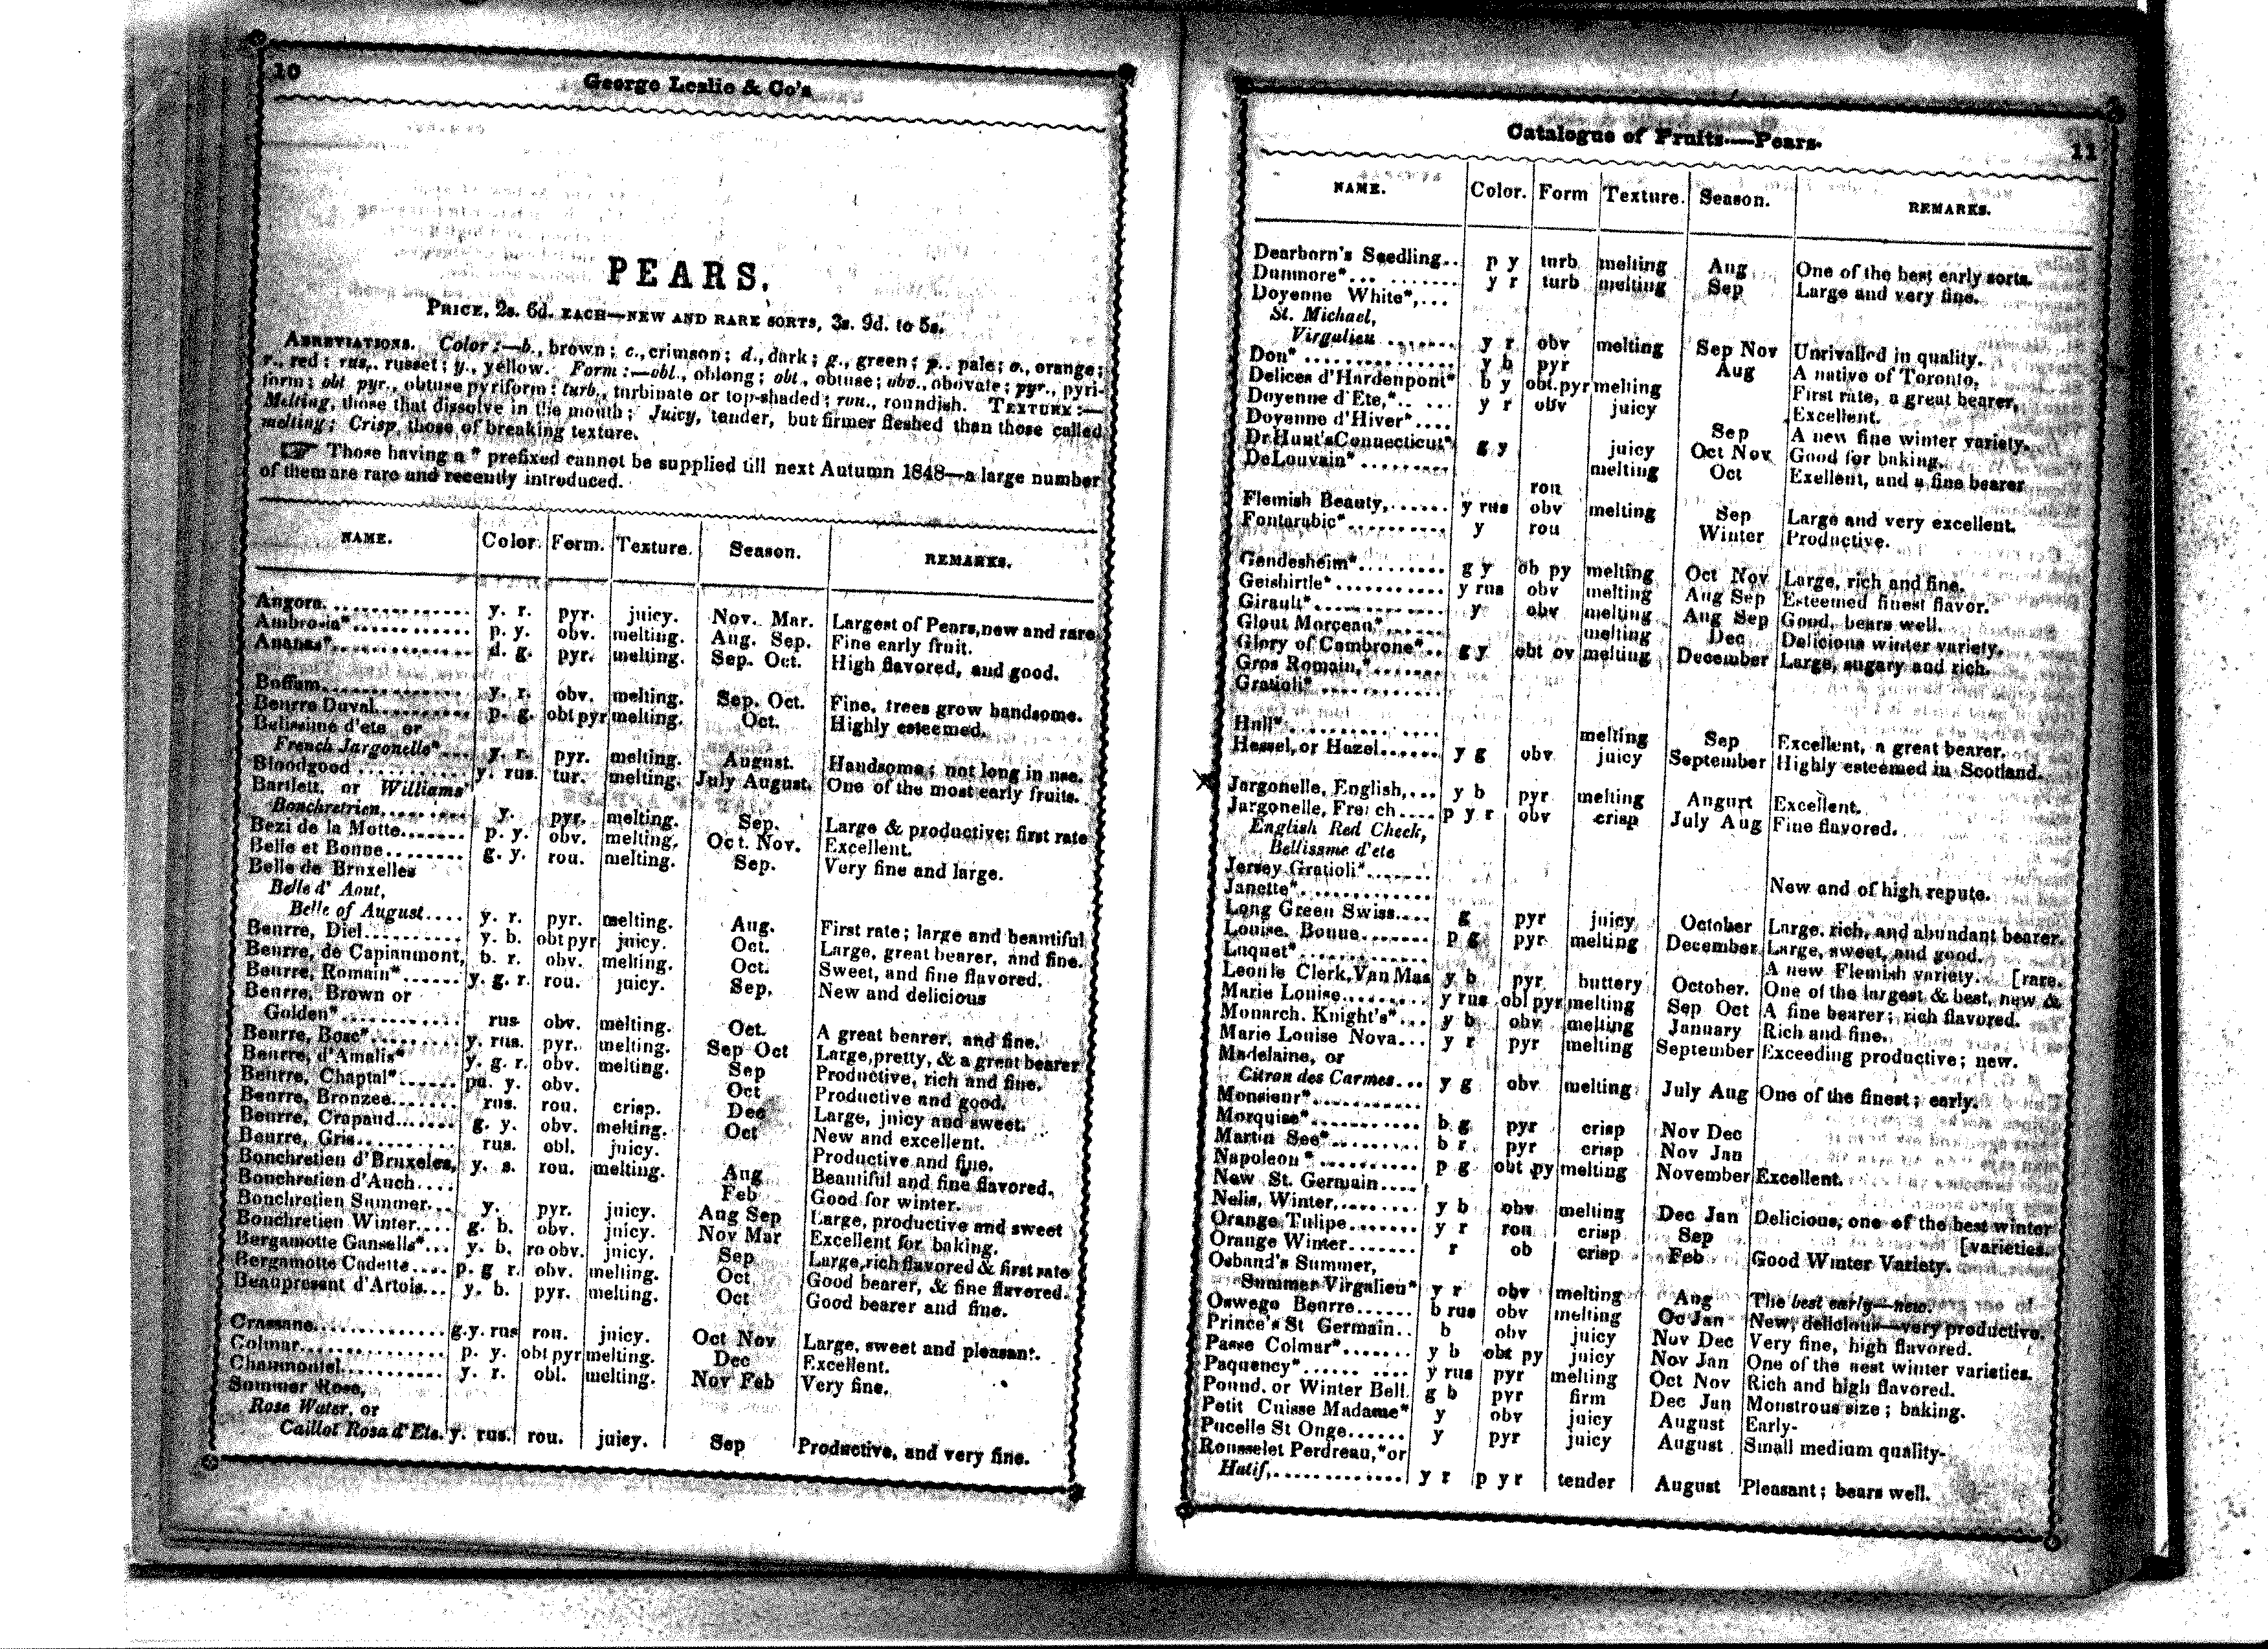 10
George Leslie & Co's
PEARS.
PRICE, 2s. 6d. EACH—NEW AND RARE SORTS, 3s. 9d. to 5s.
ABBREVIATIONS. Color:—b., brown; c., crimson; d., dark; g., green; p., pale; o., orange;
r., red; rus., russet; y., yellow. Form:—obl., oblong; obt., obtuse; obv., obovate; pyr., pyri-
form; obt pyr., obtuse pyriform; turb., turbinate or top-shaded; rou., roundish. TEXTURE:—
Melting, those that dissolve in the mouth; Juicy, tender, but firmer fleshed than those called
melting; Crisp, those of breaking texture.
☞ Those having a * prefixed cannot be supplied till next Autumn 1848—a large number
of them are rare and recently introduced.
NAME. Color. Form. Texture. Season. REMARKS.
Angora............... y. r. pyr. juicy. Nov. Mar. Largest of Pears, new and rare
Ambrosia*............ p. y. obv. melting. Aug. Sep. Fine early fruit.
Ananas*.............. d. g. pyr. melting. Sep. Oct. High flavored, and good.
Buffum............... y. r. obv. melting. Sep. Oct. Fine, trees grow handsome.
Beurre Duval......... p. g. obt pyr melting. Oct. Highly esteemed.
Belissime d'ete or
French Jargonelle*.... y. r. pyr. melting. August. Handsome; not long in use.
Bloodgood ........... y. rus. tur. melting. July August. One of the most early fruits.
Bartlett, or Williams'
Bonchretrien,........ y. pyr. melting. Sep. Large & productive; first rate
Bezi de la Motte....... p. y. obv. melting. Oct. Nov. Excellent.
Belle et Bonne......... g. y. rou. melting. Sep. Very fine and large.
Belle de Bruxelles
Belle d' Aout,
Belle of August.... y. r. pyr. melting. Aug. First rate; large and beautiful
Beurre, Diel.......... y. b. obt pyr juicy. Oct. Large, great bearer, and fine.
Beurre, de Capiaumont, b. r. obv. melting. Oct. Sweet, and fine flavored.
Beurre, Romain*...... y. g. r. rou. juicy. Sep. New and delicious
Beurre, Brown or
Golden*............ rus obv. melting. Oct. A great bearer, and fine.
Beurre, Bosc*......... y. rus. pyr. melting. Sep Oct Large, pretty, & a great bearer
Beurre, d'Amalis* y. g. r. obv. melting. Sep Productive, rich and fine.
Beurre, Chaptal*...... pa. y. obv. Oct Productive and good.
Beurre, Bronzee....... rus. rou. crisp. Dec Large, juicy and sweet.
Beurre, Crapaud....... g. y. obv. melting. Oct New and excellent.
Beurre, Gris.......... rus. obl. juicy. Productive and fine.
Bonchretien d'Bruxeles, y. s. rou. melting. Aug Beautiful and fine flavored.
Bonchretien d'Auch.... Feb Good for winter.
Bonchretien Summer... y. pyr. juicy. Aug Sep Large, productive and sweet
Bonchretien Winter.... g. b. obv. juicy. Nov Mar Excellent for baking.
Bergamotte Gansells*... y. b. ro obv. juicy. Sep Large, rich flavored & first rate
Bergamotte Cadette.... p. g r. obv. melting. Oct Good bearer, & fine flavored.
Beaupresent d'Artois... y. b. pyr. melting. Oct Good bearer and fine.
Crassane.............. g. y. rus rou. juicy. Oct Nov Large, sweet and pleasant.
Colmar............... p. y. obt pyr melting. Dec Excellent.
Chaumontel........... y. r. obl. melting. Nov Feb Very fine.
Summer Rose,
Rose Water, or
Caillot Rosa d'Ete. y. rus. rou. juicy. Sep Productive, and very fine.
Catalogue of Fruits—Pears.
11
NAME. Color. Form Texture. Season. REMARKS.
Dearborn's Seedling.. p y turb melting Aug One of the best early sorts.
Dunmore*... ........ y r turb melting Sep Large and very fine.
Doyenne White*,...
St. Michael,
Virgalieu ....... y r obv melting Sep Nov Unrivalled in quality.
Don* ............... y b pyr Aug A native of Toronto.
Delices d'Hardenpont* b y obt. pyr melting First rate, a great bearer,
Doyenne d'Ete,*.. ... y r obv juicy Excellent.
Doyenne d'Hiver*.... Sep A new fine winter variety.
Dr. Hunt's Connecticut* g y juicy Oct Nov Good for baking.
DeLouvain* ......... melting Oct Exellent, and a fine bearer
rou
Flemish Beauty,...... y rus obv melting Sep Large and very excellent.
Fontarabic*.......... y rou Winter Productive.
Gendesheim*......... g y ob py melting Oct Nov Large, rich and fine.
Geishirtle*........... y rus obv melting Aug Sep Esteemed finest flavor.
Girault*............. y obv melting Aug Sep Good, bears well.
Glout Morceau*...... melting Dec Delicious winter variety.
Glory of Cambrone*.. g y obt ov melting December Large, sugary and rich.
Gros Romain,*.......
Gratioli* ............
Hull*........ .... melting Sep Excellent, a great bearer.
Hessel, or Hazel...... y g obv juicy September Highly esteemed in Scotland.
Jargonelle, English,... y b pyr melting Augurt Excellent.
Jargonelle, French.... p y r obv crisp July Aug Fine flavored.
English Red Cheek,
Bellissme d'ete
Jersey Gratioli*.......
Janette*............. New and of high repute.
Long Green Swiss.... g pyr juicy October Large, rich, and abundant bearer.
Louise, Bonne....... p g pyr melting December Large, sweet, and good.
Luquet*............. A new Flemish variety. [rare.
Leon le Clerk, Van Mas y b pyr buttery October. One of the largest & best, new &
Marie Louise......... y rus obl pyr melting Sep Oct A fine bearer; rich flavored.
Monarch, Knight's*... y b obv melting January Rich and fine.
Marie Louise Nova... y r pyr melting September Exceeding productive; new.
Madelaine, or
Citron des Carmes... y g obv melting July Aug One of the finest; early.
Monsieur*............
Morquise*........... b g pyr crisp Nov Dec
Martin Sec*......... b r pyr crisp Nov Jan
Napoleon*.......... p g obt py melting November Excellent.
New St. Germain....
Nelis, Winter,........ y b obv melting Dec Jan Delicious, one of the best winter
Orange Tulipe....... y r rou crisp Sep [varieties.
Orange Winter....... r ob crisp Feb Good Winter Variety.
Osband's Summer,
Summer Virgalieu* y r obv melting Aug The best early—new.
Oswego Beurre...... b rus obv melting Oc Jan New, delicious—very productive.
Prince's St Germain.. b obv juicy Nov Dec Very fine, high flavored.
Passe Colmar*....... y b obt py juicy Nov Jan One of the nest winter varieties.
Paquency*...... .... y rus pyr melting Oct Nov Rich and high flavored.
Pound, or Winter Bell. g b pyr firm Dec Jan Monstrous size; baking.
Petit Cuisse Madame* y obv juicy August Early-
Pucelle St Onge...... y pyr juicy August Small medium quality-
Rousselet Perdreau,* or
Hatif,............. y r p y r tender August Pleasant; bears well.